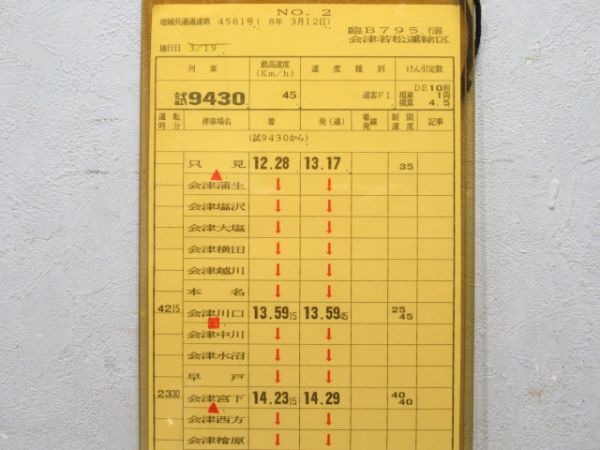 NO. 2
地域共通通達第 4581号( 8年 3月12日)
臨B795 行路
会津若松運輸区
施行日 3/19
列車 最高速度(Km/h) 速度種別 けん引定数
試9430 45 通客F1 DE10形 現車 1両 換算 4.5
運転時分 停車場名 着 発(通) 着発線 制限速度 記事
(試9430から)
只見 12.28 13.17 35
会津蒲生 ↓ ↓
会津塩沢 ↓ ↓
会津大塩 ↓ ↓
会津横田 ↓ ↓
会津越川 ↓ ↓
本名 ↓ ↓
4215 会津川口 13.59 15 13.59 45 25 45
会津中川 ↓ ↓
会津水沼 ↓ ↓
早戸 ↓ ↓
2330 会津宮下 14.23 15 14.29 40 40
会津西方 ↓ ↓
会津檜原 ↓ ↓